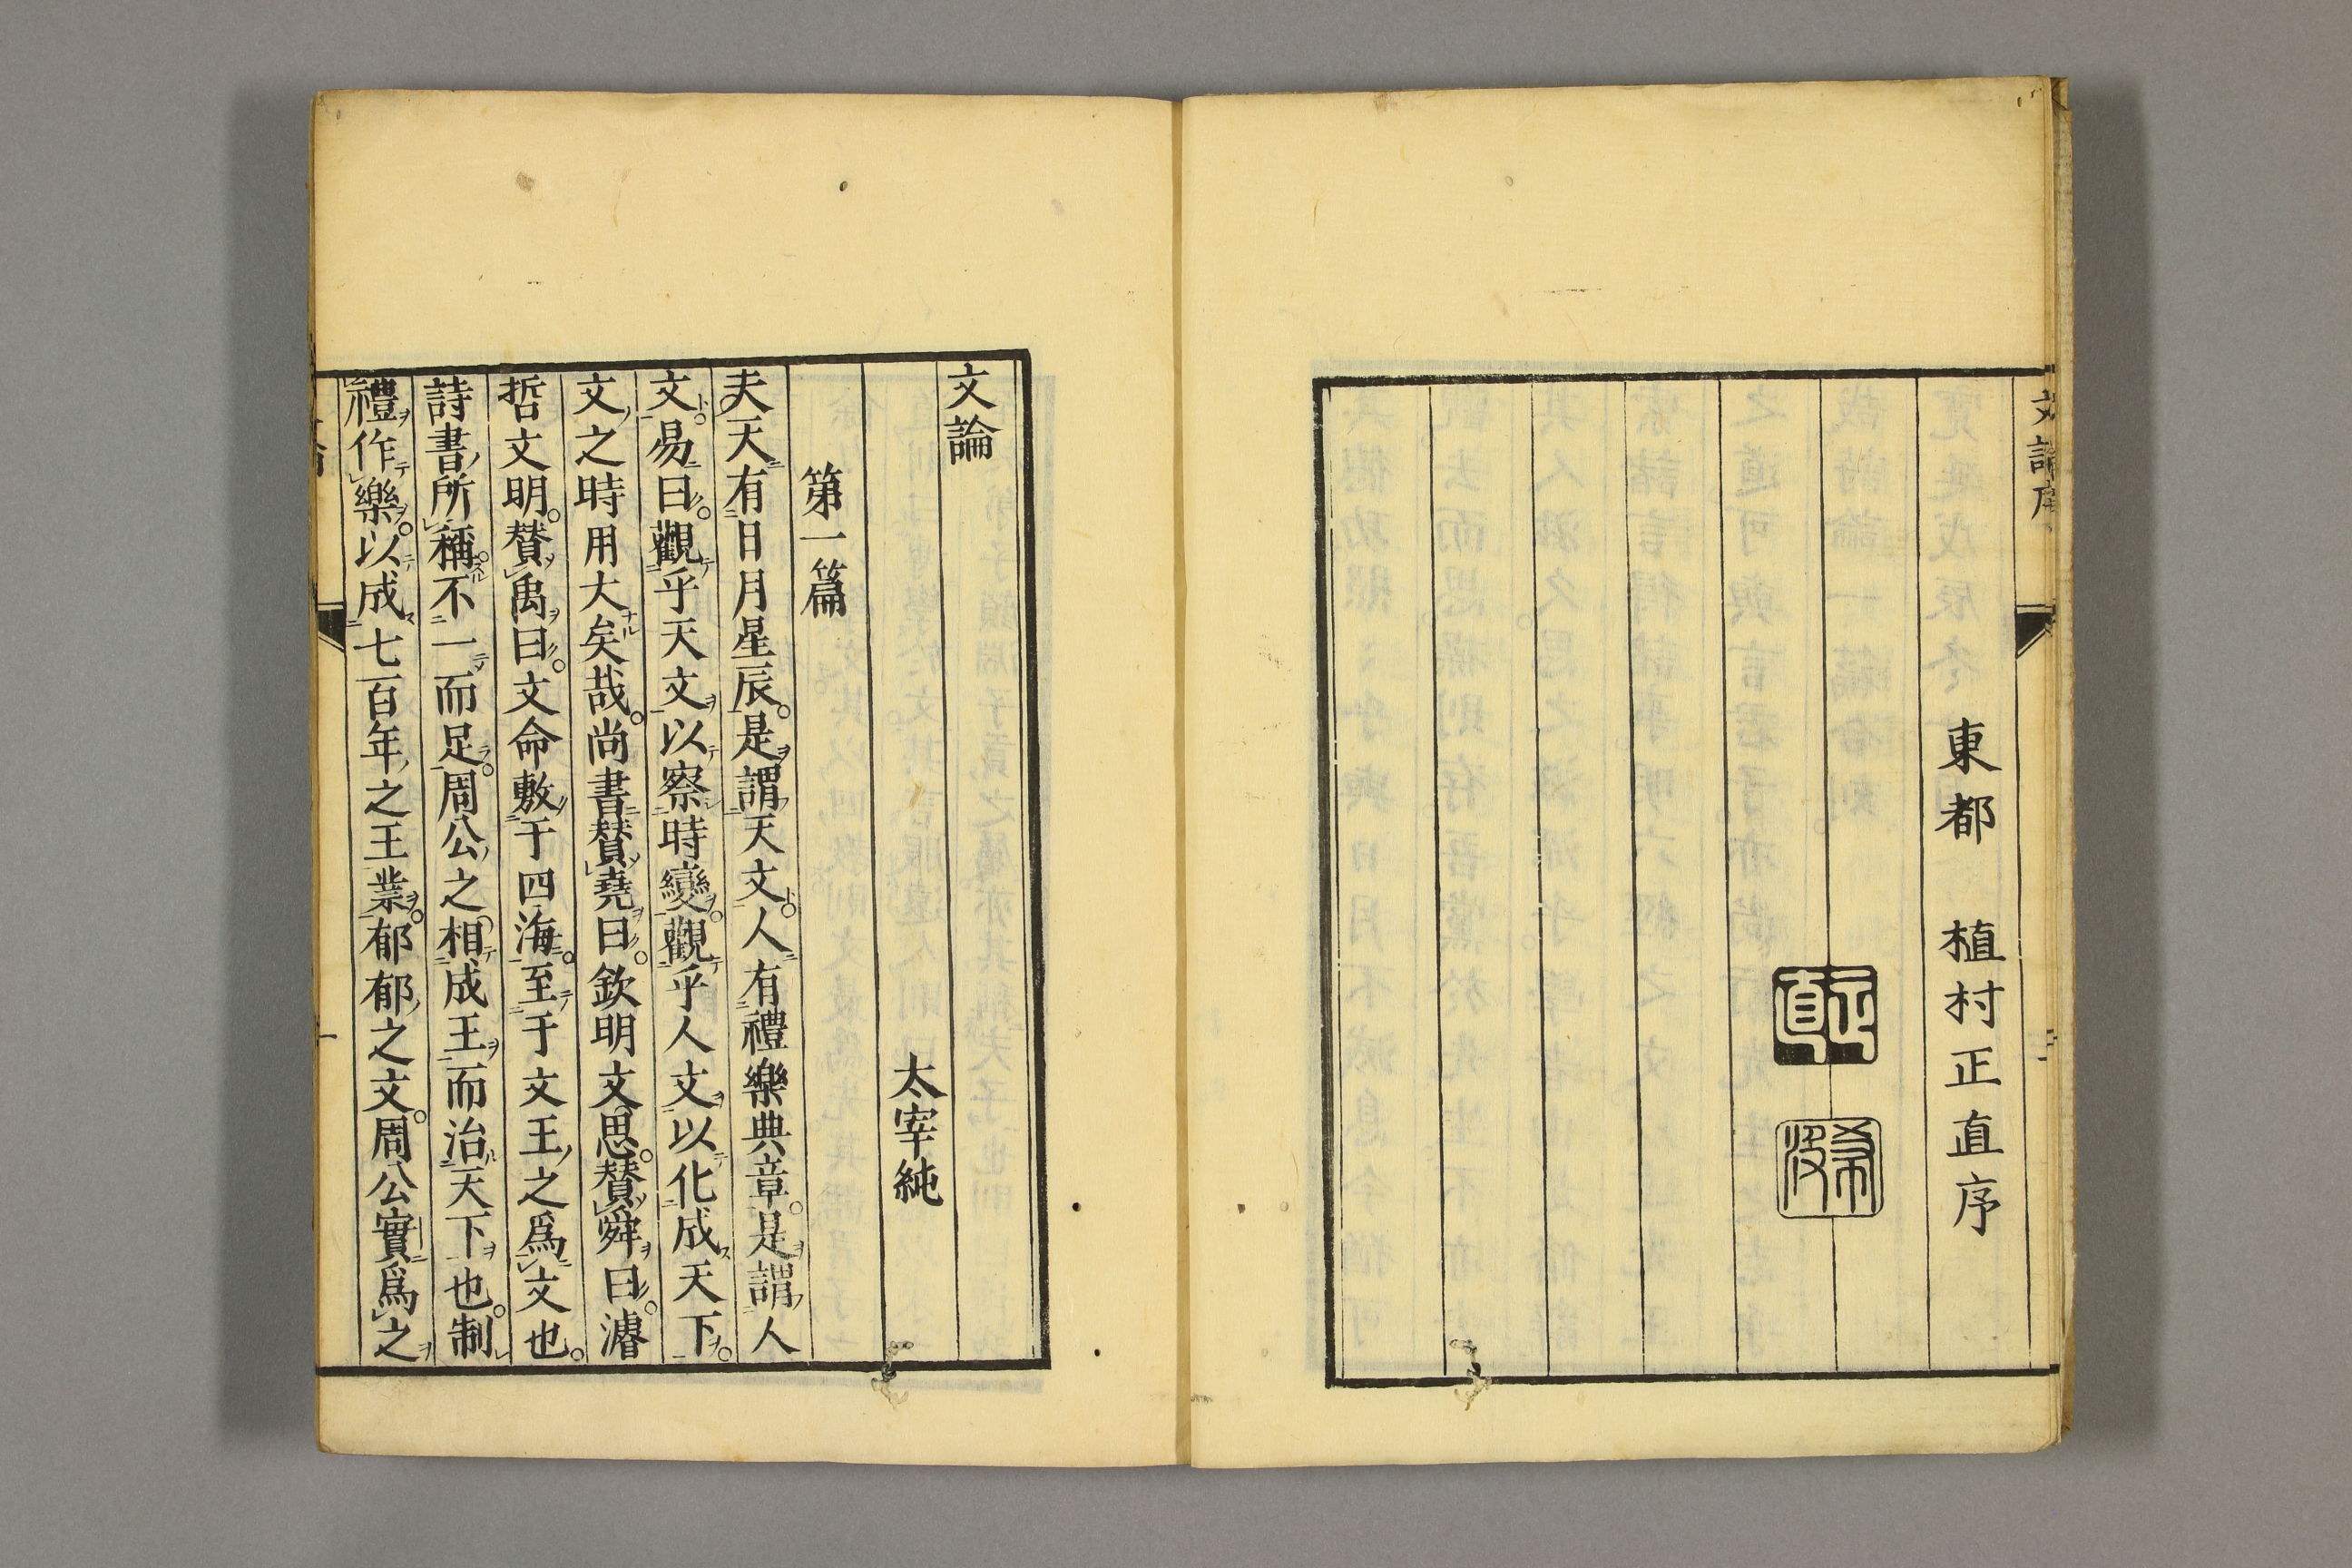 東都 植村正直序
文論
太宰純
第一篇
夫天有日月星辰。是謂天文。人有禮樂典章。是謂人
文。易曰。觀乎天文以察時變。觀乎人文以化成天下。
文之時用大矣哉。尚書贊堯曰。欽明文思。贊舜曰。濬
哲文明。贊禹曰。文命敷于四海。至于文王之爲文也。
詩書所稱。不一而足。周公之相成王而治天下也。制
禮作樂。以成七百年之王業。郁郁之文。周公實爲之